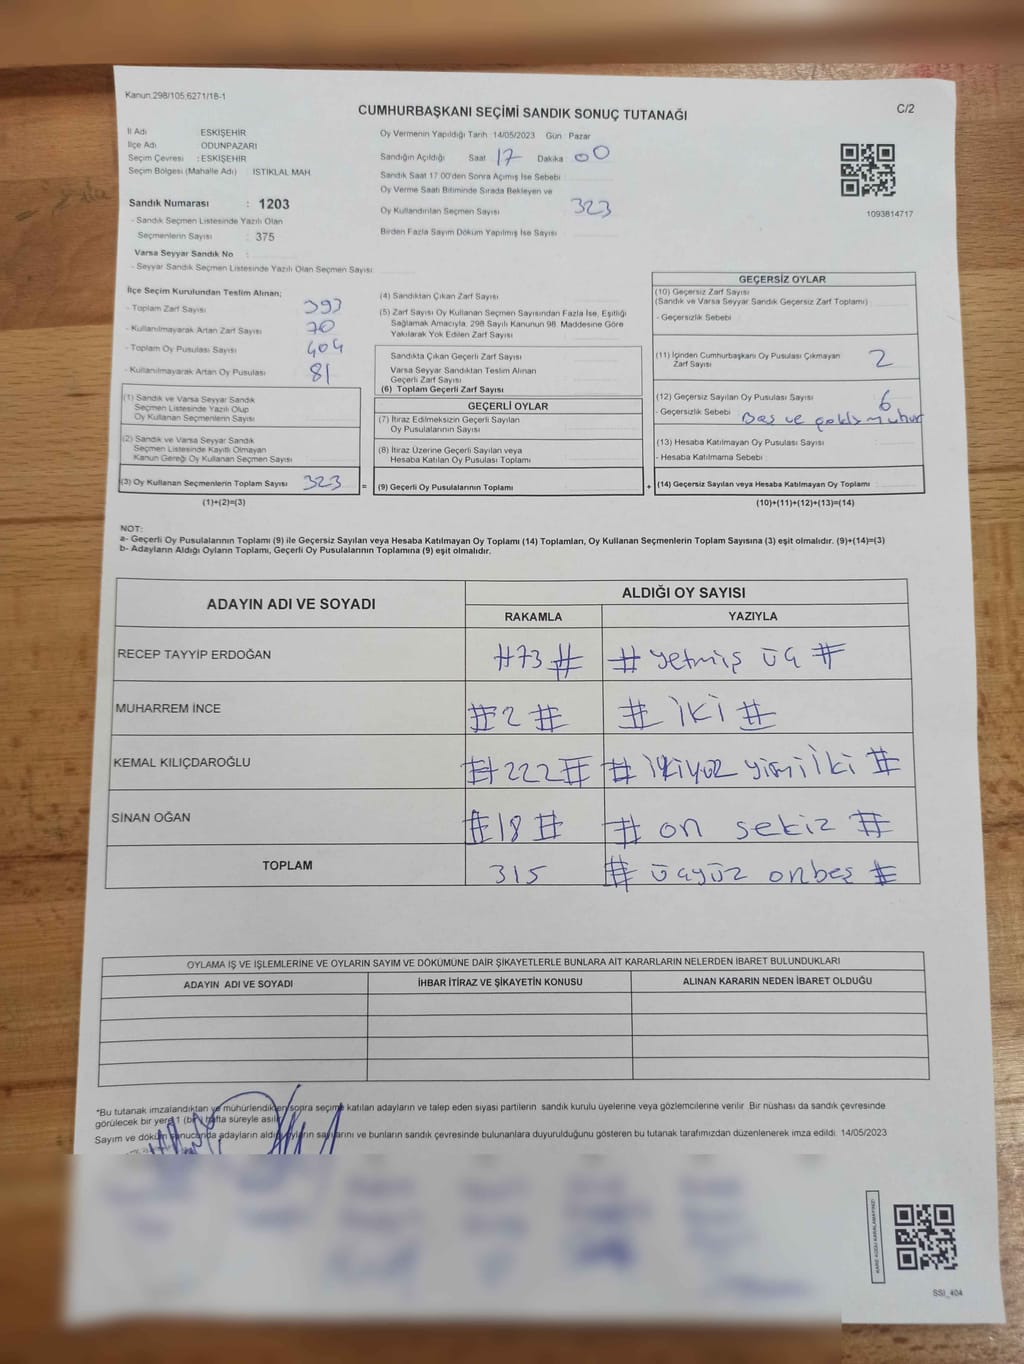 Kanun:298/105,6271/18-1
CUMHURBAŞKANI SEÇİMİ SANDIK SONUÇ TUTANAĞI
C/2
İl Adı ESKİŞEHİR
İlçe Adı ODUNPAZARI
Seçim Çevresi : ESKİŞEHİR
Seçim Bölgesi (Mahalle Adı) İSTİKLAL MAH
Sandık Numarası : 1203
- Sandık Seçmen Listesinde Yazılı Olan
Seçmenlerin Sayısı : 375
Varsa Seyyar Sandık No
- Seyyar Sandık Seçmen Listesinde Yazılı Olan Seçmen Sayısı:
Oy Vermenin Yapıldığı Tarih 14/05/2023 Gün Pazar
Sandığın Açıldığı Saat 17 Dakika 00
Sandık Saat 17.00'den Sonra Açımış İse Sebebi
Oy Verme Saati Bitiminde Sırada Bekleyen ve
Oy Kullandırılan Seçmen Sayısı 323
Birden Fazla Sayım Döküm Yapılmış İse Sayısı
1093814717
İlçe Seçim Kurulundan Teslim Alınan;
- Toplam Zarf Sayısı 393
- Kullanılmayarak Artan Zarf Sayısı 70
- Toplam Oy Pusulası Sayısı 404
- Kullanılmayarak Artan Oy Pusulası 81
(1) Sandık ve Varsa Seyyar Sandık
Seçmen Listesinde Yazılı Olup
Oy Kullanan Seçmenlerin Sayısı
(2) Sandık ve Varsa Seyyar Sandık
Seçmen Listesinde Kayıtlı Olmayan
Kanun Gereği Oy Kullanan Seçmen Sayısı
(3) Oy Kullanan Seçmenlerin Toplam Sayısı 323 =
(1)+(2)=(3)
(4) Sandıktan Çıkan Zarf Sayısı
(5) Zarf Sayısı Oy Kullanan Seçmen Sayısından Fazla İse, Eşitliği
Sağlamak Amacıyla, 298 Sayılı Kanunun 98. Maddesine Göre
Yakılarak Yok Edilen Zarf Sayısı
Sandıkta Çıkan Geçerli Zarf Sayısı
Varsa Seyyar Sandıktan Teslim Alınan
Geçerli Zarf Sayısı
(6) Toplam Geçerli Zarf Sayısı
GEÇERLİ OYLAR
(7) İtiraz Edilmeksizin Geçerli Sayılan
Oy Pusulalarının Sayısı
(8) İtiraz Üzerine Geçerli Sayılan veya
Hesaba Katılan Oy Pusulası Toplamı
(9) Geçerli Oy Pusulalarının Toplamı +
GEÇERSİZ OYLAR
(10) Geçersiz Zarf Sayısı
(Sandık ve Varsa Seyyar Sandık Geçersiz Zarf Toplamı)
- Geçersizlik Sebebi
(11) İçinden Cumhurbaşkanı Oy Pusulası Çıkmayan
Zarf Sayısı 2
(12) Geçersiz Sayılan Oy Pusulası Sayısı 6
- Geçersizlik Sebebi Boş ve çoklu mühür
(13) Hesaba Katılmayan Oy Pusulası Sayısı
- Hesaba Katılmama Sebebi
(14) Geçersiz Sayılan veya Hesaba Katılmayan Oy Toplamı
(10)+(11)+(12)+(13)=(14)
NOT:
a- Geçerli Oy Pusulalarının Toplamı (9) ile Geçersiz Sayılan veya Hesaba Katılmayan Oy Toplamı (14) Toplamları, Oy Kullanan Seçmenlerin Toplam Sayısına (3) eşit olmalıdır. (9)+(14)=(3)
b- Adayların Aldığı Oyların Toplamı, Geçerli Oy Pusulalarının Toplamına (9) eşit olmalıdır.
ADAYIN ADI VE SOYADI
ALDIĞI OY SAYISI
RAKAMLA YAZIYLA
RECEP TAYYİP ERDOĞAN #73# # yetmiş üç #
MUHARREM İNCE #2# # iki #
KEMAL KILIÇDAROĞLU #222# # ikiyüz yirmi iki #
SİNAN OĞAN #18# # on sekiz #
TOPLAM 315 # üçyüz onbeş #
OYLAMA İŞ VE İŞLEMLERİNE VE OYLARIN SAYIM VE DÖKÜMÜNE DAİR ŞİKAYETLERLE BUNLARA AİT KARARLARIN NELERDEN İBARET BULUNDUKLARI
ADAYIN ADI VE SOYADI İHBAR İTİRAZ VE ŞİKAYETİN KONUSU ALINAN KARARIN NEDEN İBARET OLDUĞU
*Bu tutanak imzalandıktan ve mühürlendikten sonra seçime katılan adayların ve talep eden siyasi partilerin sandık kurulu üyelerine veya gözlemcilerine verilir. Bir nüshası da sandık çevresinde
görülecek bir yere 1 (bir) hafta süreyle asılır.
Sayım ve döküm sonucunda adayların aldığı oyların sayılarını ve bunların sandık çevresinde bulunanlara duyurulduğunu gösteren bu tutanak tarafımızdan düzenlenerek imza edildi. 14/05/2023
KARE KODU KARALAMAYINIZ!
SSI_404